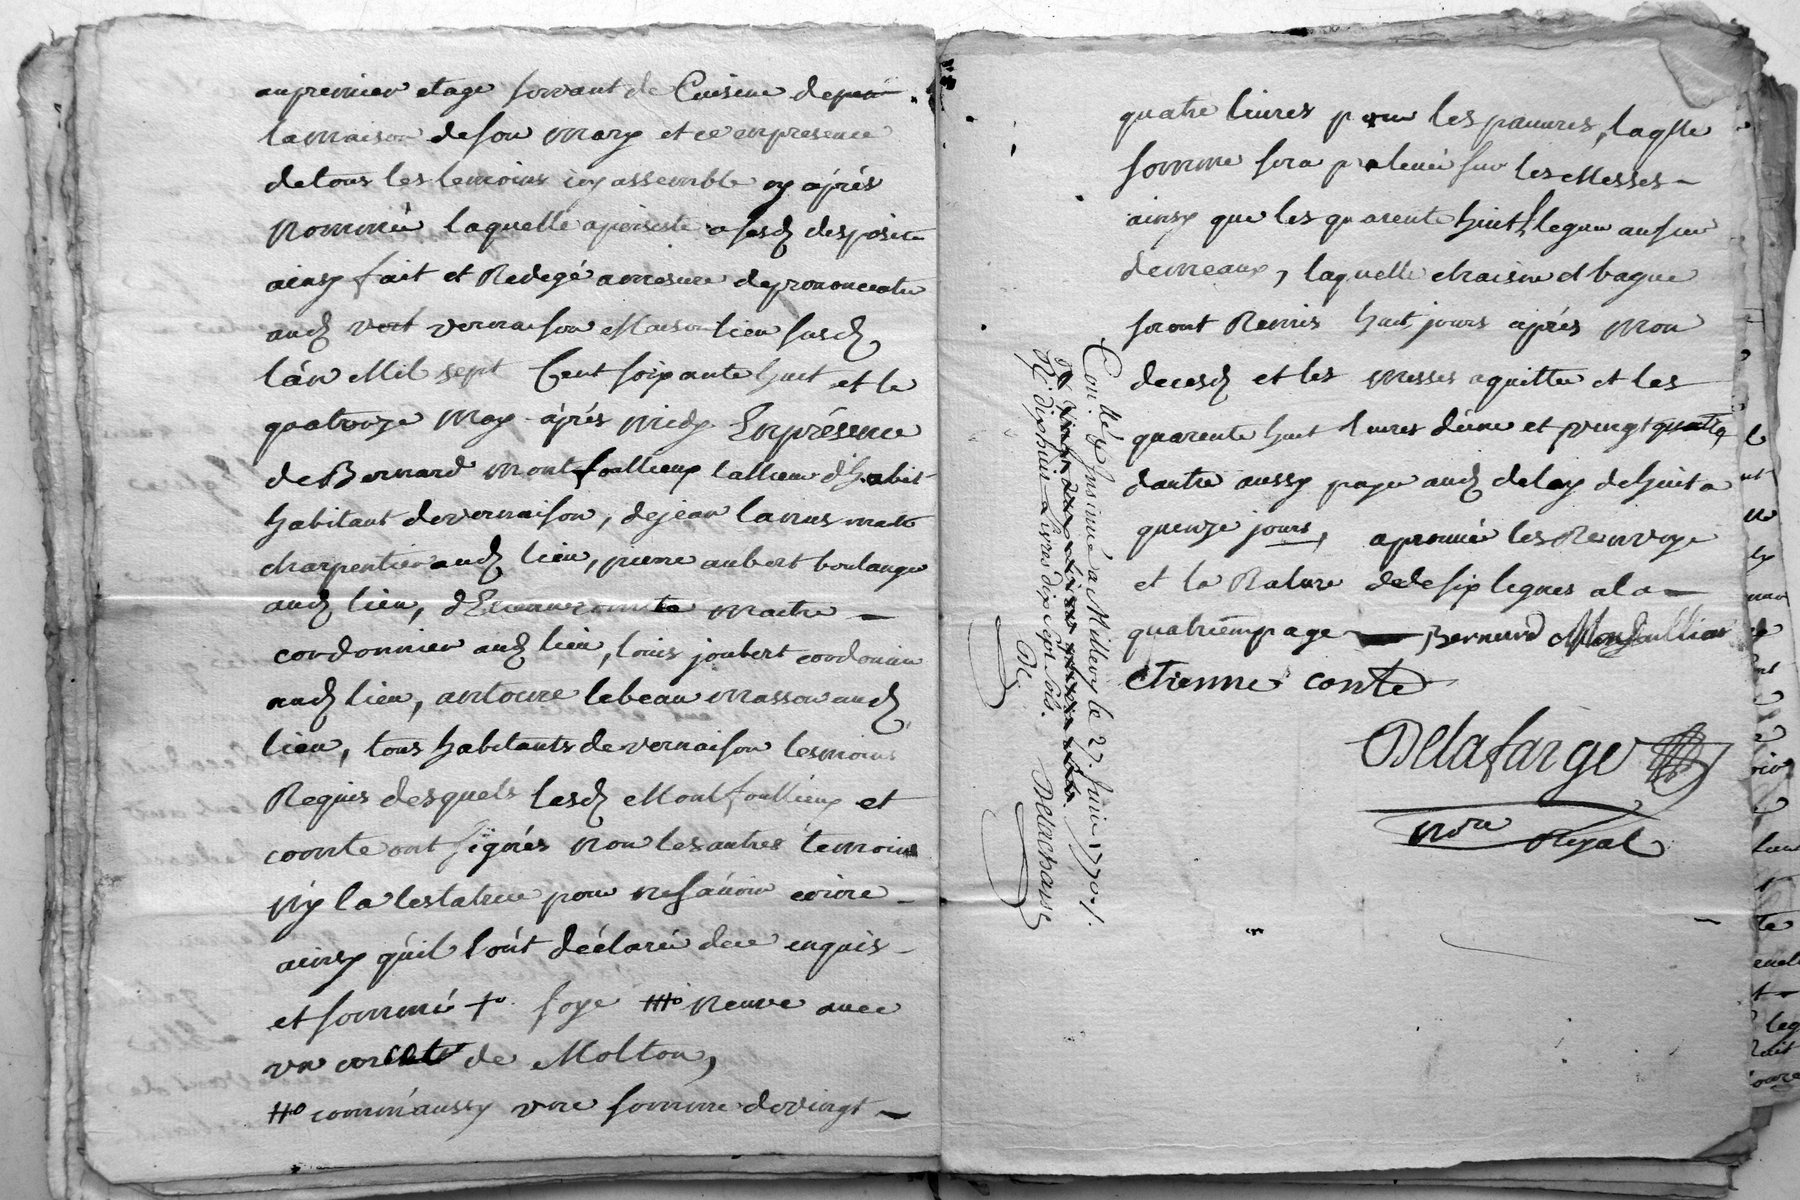 au premier etage servant de Cuisine de
la maison de son mary et ce en presence
de tous les temoins icy assemblé cy aprés
nommés laquelle a persisté a sesd dispositi
ainsy fait et Redegé a mesure de prononciatio
aud vert vernaison Maison lieu susd
l'án Mil sept Cent soixante huit et le
quatorze May aprés midy En présence
de Bernard montfoullioux tallieur d'habit
habitant de vernaison, de jean lanus mait
charpentier aud lieu, pierre aubert boulanger
aud lieu, d'Etienne comte maitre
cordonnier aud lieu, louis joubert cordonier
aud lieu, antoine lebeau masson aud
lieu, tous habitants de vernaison tesmoins
Requis desquels lesd Montfoullioux et
comte ont signés non les autres temoins
ny la testatrice pour ne sçavoir ecrire
ainsy qu'il l'ont déclaré de ce enquis
et sommé + soye # neuve avec
un corset de Molton,
# comm'aussy une somme de vingt
quatre livres pour les pauvres, laqlle
somme sera prelevé sur les Messes
ainsy que les quarente huit leguer
de meaux, laquelle chaisne et bague
seront Remis huit jours aprés mon
decesd et les messes aquitter et les
quarente huit livres d'une et vingt quatre
d'autre aussy paye aud delay de huit a
quenze jours, aprouvé les Renvoye
et la Rature de six lignes a la
quatriem page Bernard Monfoullioux
etienne conte
Delafarge
nore Royal
Con.llé & Insinué a Millery le 27. Juin 1770.
R. dix huit Livres dix sept sols.
Delachausse